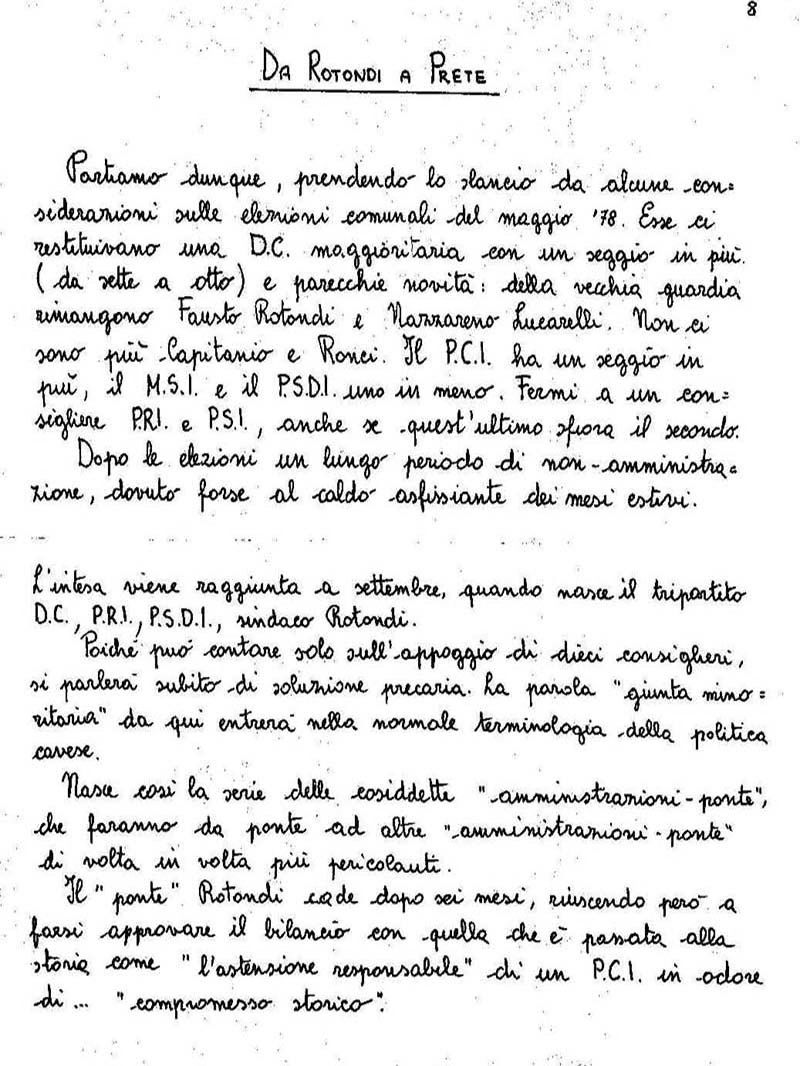 8
DA ROTONDI A PRETE
Partiamo dunque, prendendo lo slancio da alcune con=
siderazioni sulle elezioni comunali del maggio '78. Esse ci
restituivano una D.C. maggioritaria con un seggio in più.
(da sette a otto) e parecchie novità: della vecchia guardia
rimangono Fausto Rotondi e Nazzareno Lucarelli. Non ci
sono più Capitanio e Ronci. Il P.C.I. ha un seggio in
più, il M.S.I. e il P.S.D.I. uno in meno. Fermi a un con=
sigliere P.R.I. e P.S.I., anche se quest'ultimo sfiora il secondo.
Dopo le elezioni un lungo periodo di non-amministra=
zione, dovuto forse al caldo asfissiante dei mesi estivi.
L'intesa viene raggiunta a settembre, quando nasce il tripartito
D.C., P.R.I., P.S.D.I., sindaco Rotondi.
Poiché può contare solo sull'appoggio di dieci consiglieri,
si parlerà subito di soluzione precaria. La parola "giunta mino=
ritaria" da qui entrerà nella normale terminologia della politica
cavese.
Nasce così la serie delle cosiddette "amministrazioni-ponte",
che faranno da ponte ad altre "amministrazioni-ponte"
di volta in volta più pericolanti.
Il "ponte" Rotondi cade dopo sei mesi, riuscendo però a
farsi approvare il bilancio con quella che è passata alla
storia come "l'astensione responsabile" di un P.C.I. in odore
di... "compromesso storico".